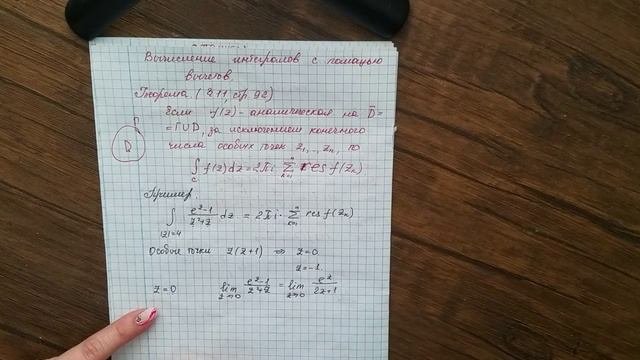 Вычисление интегралов с помощью
вычетов.
Теорема (4.11, стр 92)
Если f(z) - аналитическая на D̄ =
Γ
= Γ∪D, за исключением конечного
D
числа особых точек z₁,..., zₙ, то
∫ f(z)dz = 2πi Σ res f(zₖ)
c k=1 n
Пример.
∫ (e^z-1)/(z²+z) dz = 2πi · Σ res f(zₖ)
|z|=4 k=1 n
Особые точки z(z+1) ⇒ z=0
z=-1
z=0 lim (e^z-1)/(z²+z) = lim e^z/(2z+1)
z→0 z→0